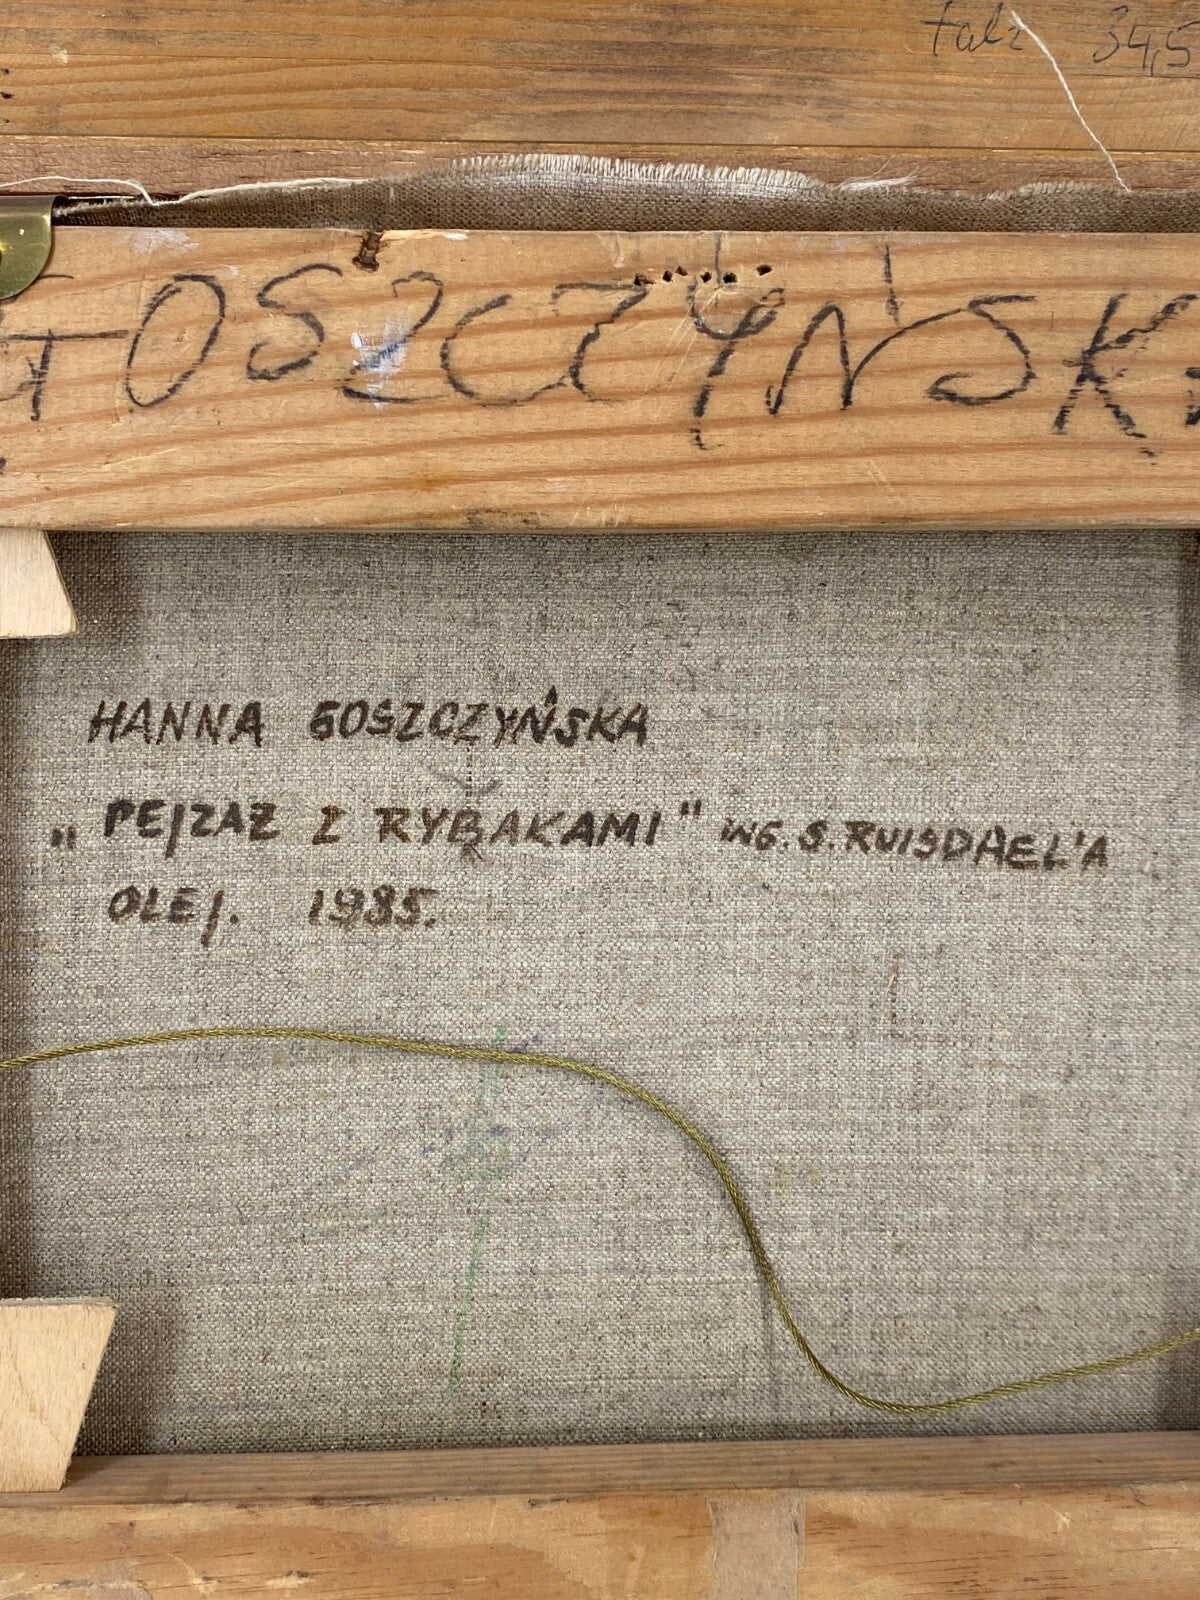 falz 34,5
GOSZCZYŃSKA
HANNA GOSZCZYŃSKA
„PEJZAŻ Z RYBAKAMI" WG. S. RUISDAEL'A
OLEJ. 1985.